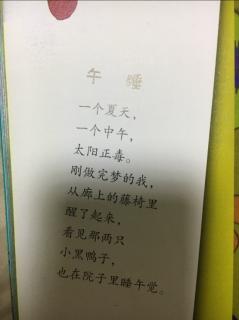 午睡
一个夏天，
一个中午，
太阳正毒。
刚做完梦的我，
从廊上的藤椅里
醒了起来，
看见那两只
小黑鸭子，
也在院子里睡午觉。